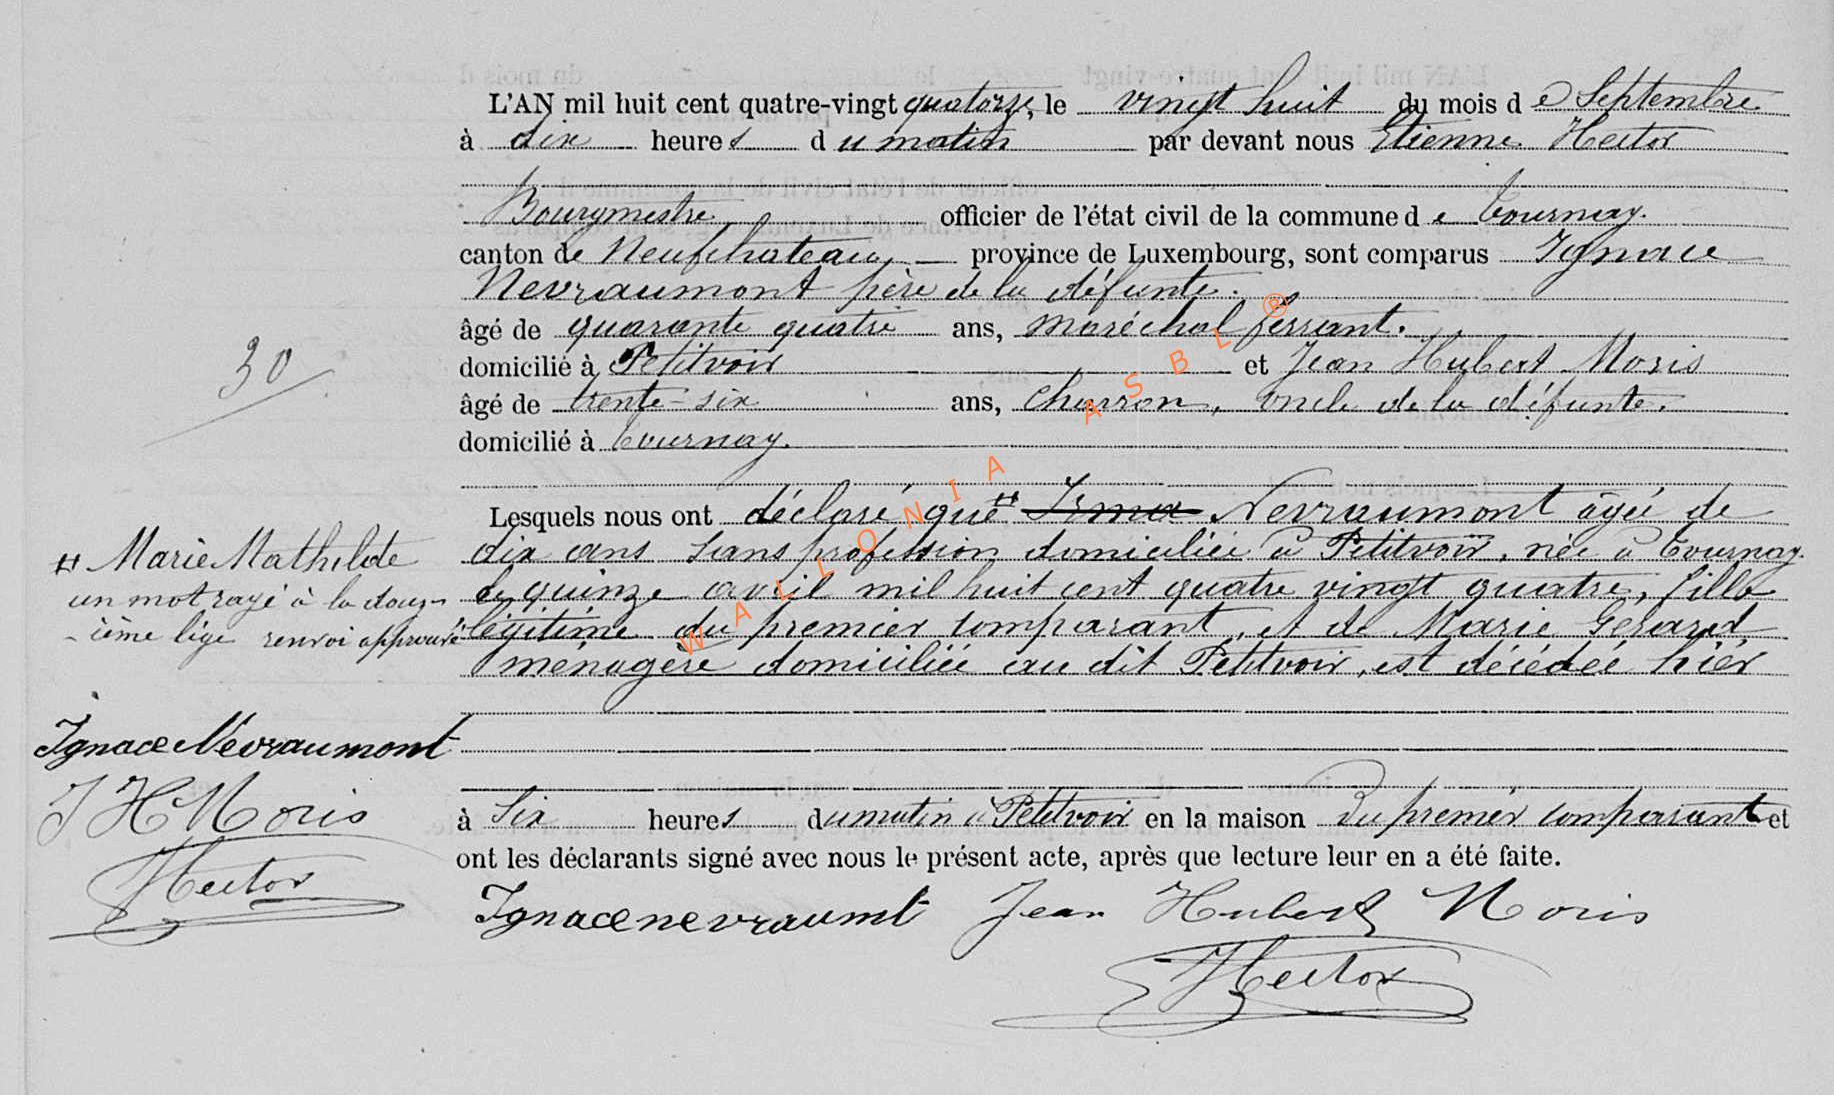 L'AN mil huit cent quatre-vingt quatorze, le vingt huit du mois de Septembre
à dix heures du matin par devant nous Etienne Hector
Bourgmestre officier de l'état civil de la commune de Tournay.
canton de Neufchateau, province de Luxembourg, sont comparus Ignace
Nevraumont père de la défunte.
âgé de quarante quatre ans, maréchal ferrant.
domicilié à Petitvoir et Jean Hubert Moris
âgé de trente-six ans, charron, oncle de la défunte.
domicilié à Tournay.
30
Lesquels nous ont déclaré que # Irma Nevraumont âgée de
dix ans sans profession domiciliée à Petitvoir, née à Tournay.
le quinze avril mil huit cent quatre vingt quatre, fille
légitime du premier comparant, et de Marie Gérard,
ménagère domiciliée au dit Petitvoir, est décédée hier
# Marie Mathilde
un mot rayé à la douz-
-ième lige renvoi approuvé
Ignace Nevraumont
J H Moris
Hector
à six heures du matin à Petitvoir en la maison du premier comparant et
ont les déclarants signé avec nous le présent acte, après que lecture leur en a été faite.
Ignace nevraumt Jean Hubert Moris
Hector
WALLONIA ASBL ®